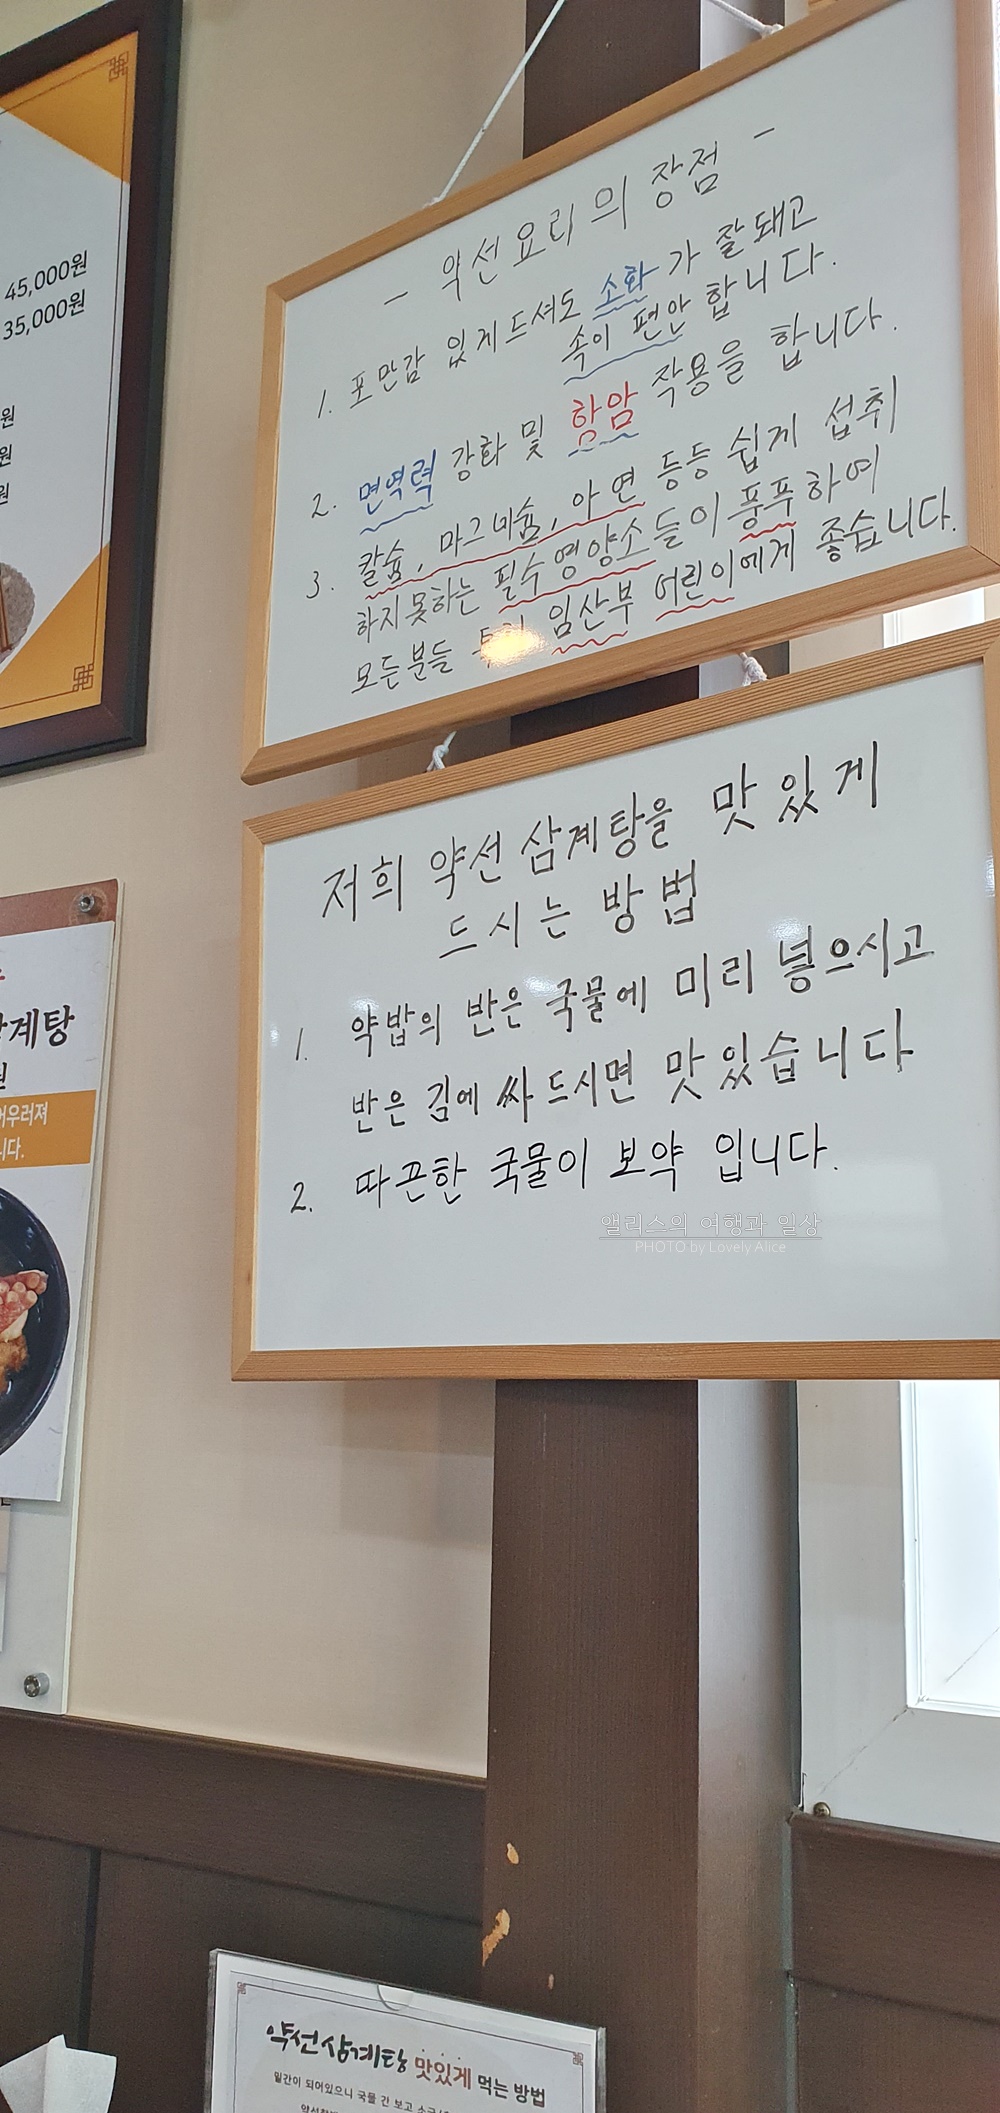 45,000원
35,000원
원
원
원
- 약선요리의 장점 -
1. 포만감 있게 드셔도 소화가 잘돼고
속이 편안합니다.
2. 면역력 강화 및 항암 작용을 합니다.
3. 칼슘, 마그네슘, 아연 등등 쉽게 섭취
하지못하는 필수영양소들이 풍푸하여
모든분들 임산부 어린이에게 좋습니다.
저희 약선 삼계탕을 맛있게
드시는 방법
1. 약밥의 반은 국물에 미리 넣으시고
반은 김에 싸 드시면 맛있습니다
2. 따끈한 국물이 보약 입니다.
앨리스의 여행과 일상
PHOTO by Lovely Alice
계탕
원
어우러져
니다.
약선삼계탕 맛있게 먹는 방법
밑간이 되어있으니 국물 간 보고